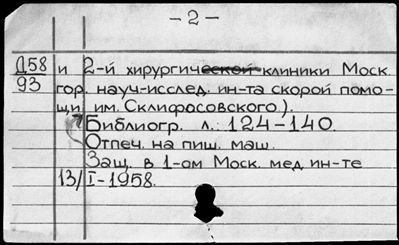 - 2 -
Д58 и 2-й хирургической клиники Моск.
93 гор. науч-исслед. ин-та скорой помо-
щи им. Склифосовского).
Библиогр. л.: 124-140.
Отпеч. на пиш. маш.
Защ. в 1-ом Моск. мед ин-те
13/I-1958.